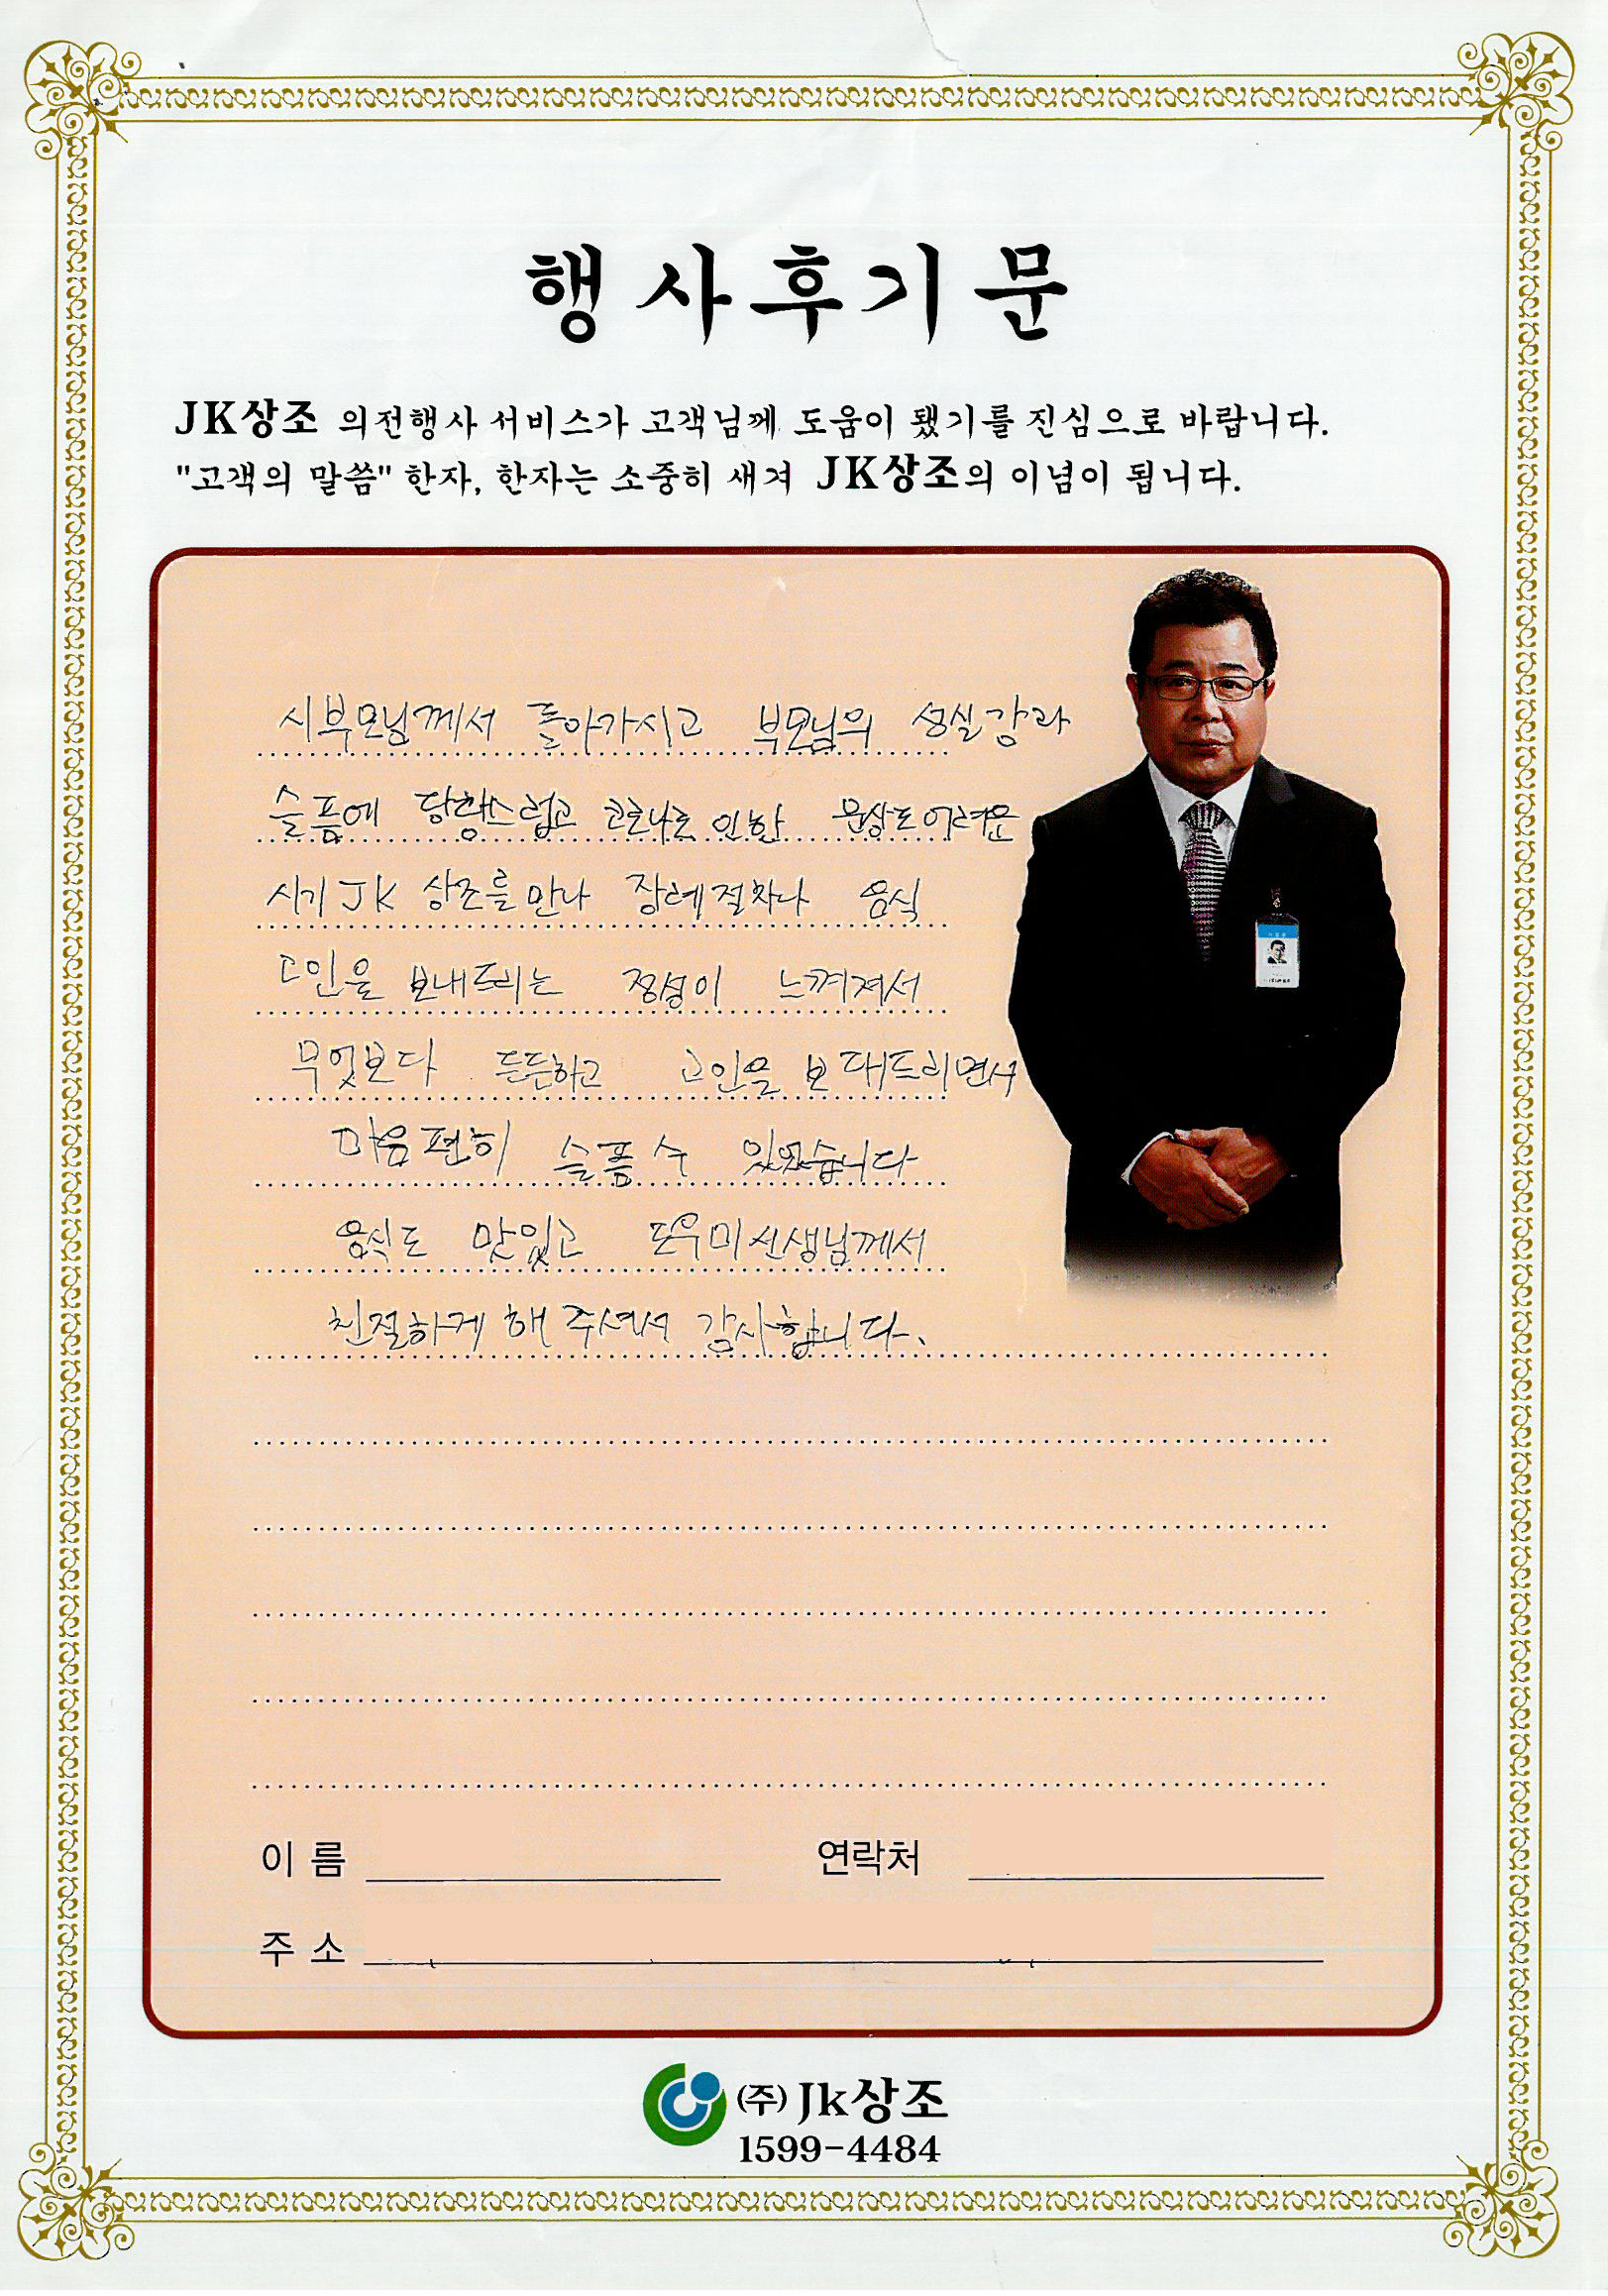 행사후기문
JK상조 의전행사 서비스가 고객님께 도움이 됐기를 진심으로 바랍니다.
"고객의 말씀" 한자, 한자는 소중히 새겨 JK상조의 이념이 됩니다.
시부모님께서 돌아가시고 부모님의 상실감과
슬픔에 당황스럽고 코로나로 인한 문상도 어려운
시기 JK 상조를 만나 장례절차나 음식
고인을 보내드리는 정성이 느껴져서
무엇보다 든든하고 고인을 보내드리면서
마음편히 슬플수 있었습니다
음식도 맛있고 도우미선생님께서
친절하게 해 주셔서 감사합니다.
이 름 연락처
주 소
(주) Jk상조
1599-4484